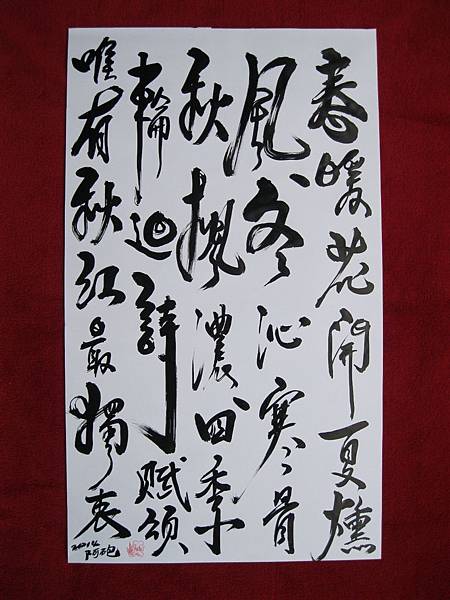 春暖花開夏燻
風冬沁寒骨
秋楓濃四季
輪迴詩賦頌
唯有秋紅最獨衷
阿砲